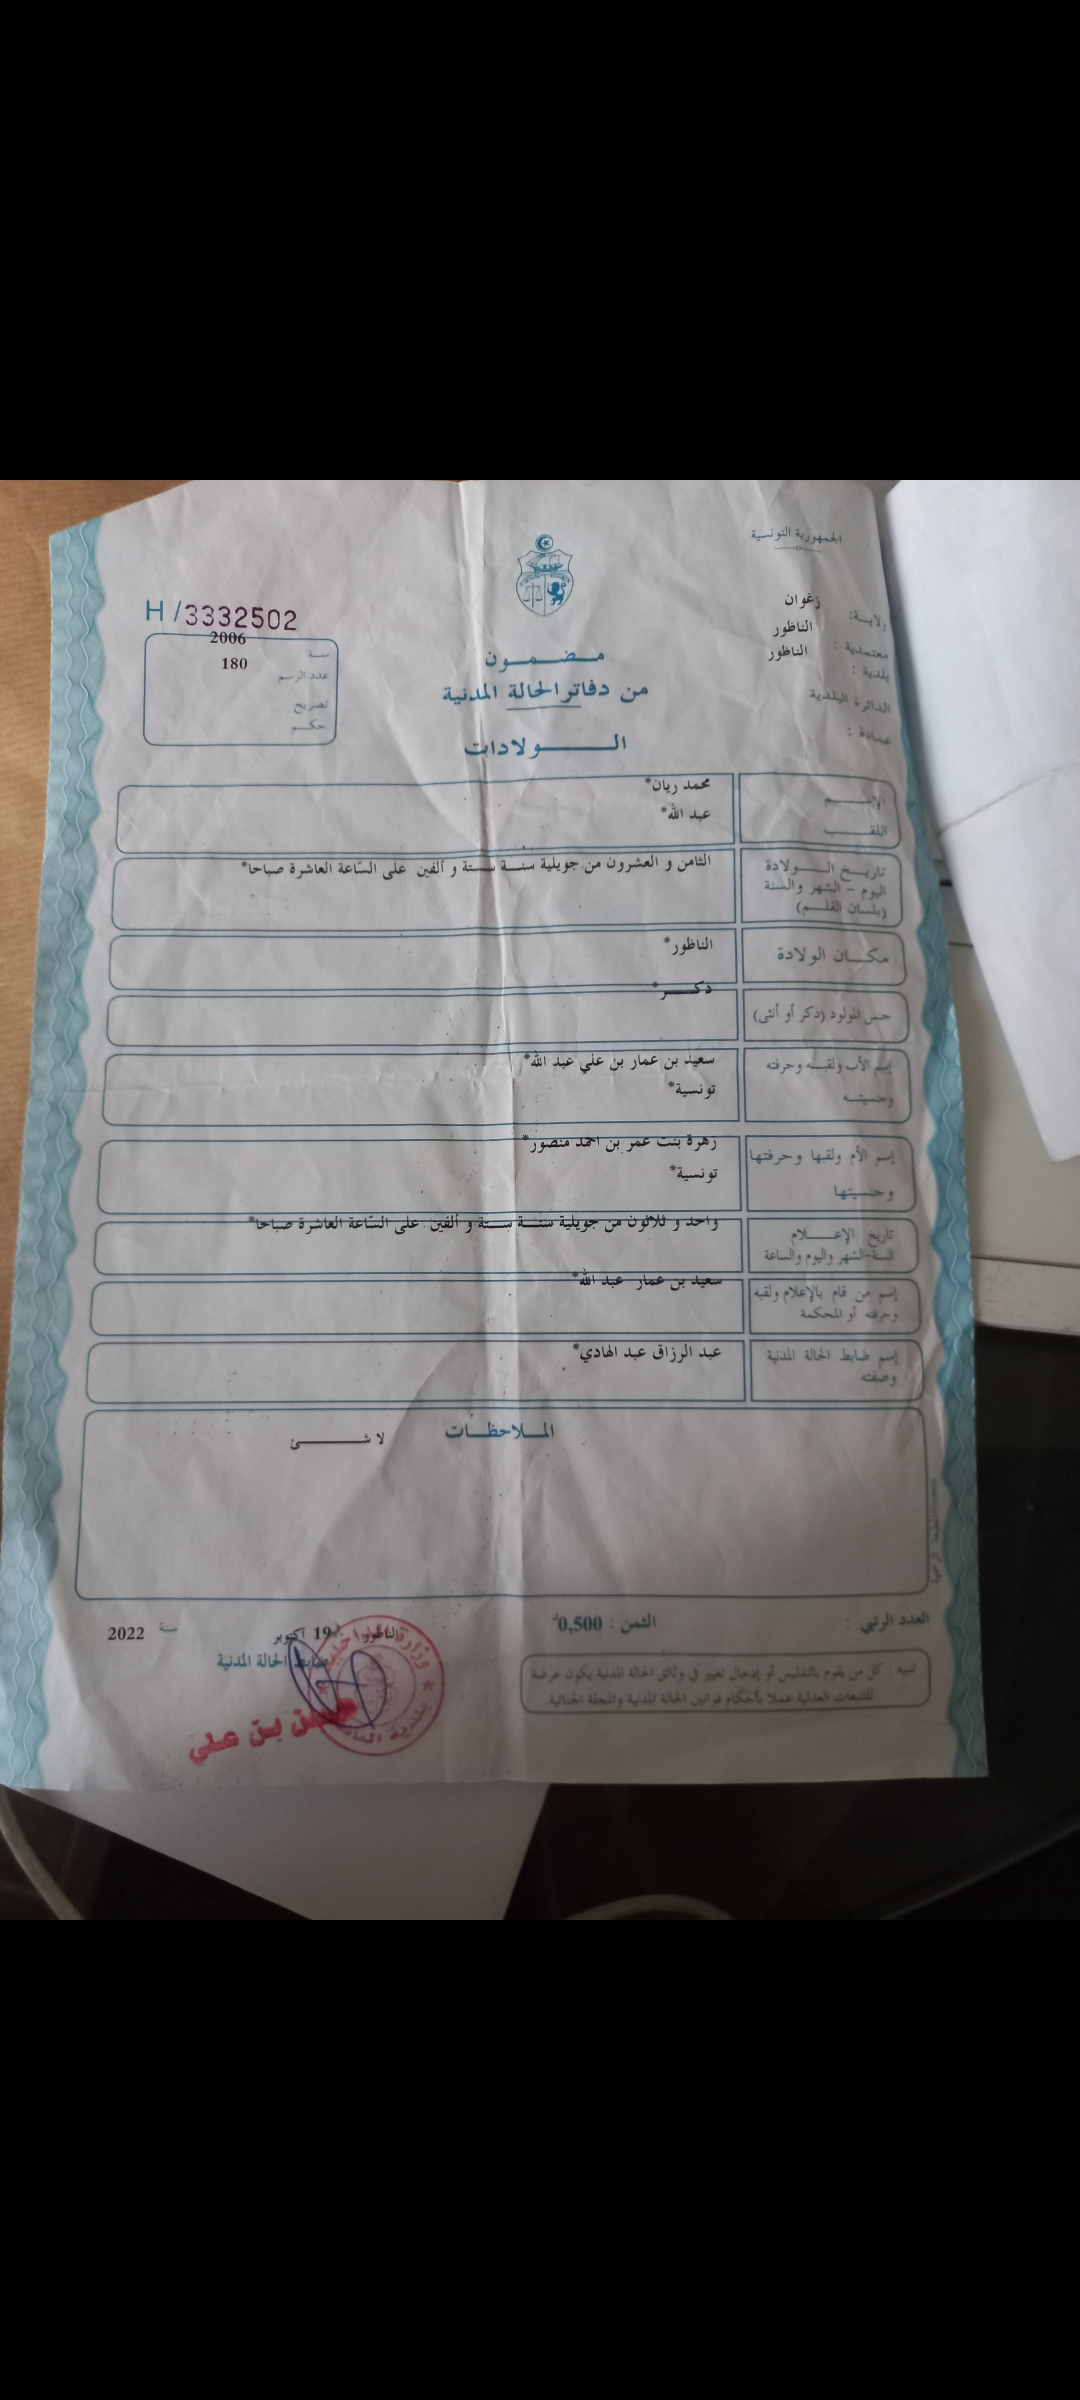 الجمهورية التونسية
ولاية: زغوان
معتمدية : الناظور
بلدية : الناظور
الدائرة البلدية
عمادة :
H /3332502
سنة 2006
عدد الرسم 180
تصريح
حكم
مضمون
من دفاتر الحالة المدنية
الولادات
الإسم محمد ريان*
اللقب عبد الله*
تاريخ الولادة
اليوم - الشهر والسنة
(بلسان القلم)
الثامن و العشرون من جويلية سنة ستة و ألفين على السّاعة العاشرة صباحا*
مكان الولادة الناظور*
جنس المولود (ذكر أو أنثى) ذكر*
إسم الأب ولقبه وحرفته
وجنسيته
سعيد بن عمار بن علي عبد الله*
تونسية*
إسم الأم ولقبها وحرفتها
وجنسيتها
زهرة بنت عمر بن احمد منصور*
تونسية*
تاريخ الإعلام
السنة-الشهر واليوم والساعة
واحد و ثلاثون من جويلية سنة ستة و ألفين على السّاعة العاشرة صباحا*
إسم من قام بالإعلام ولقبه
وحرفته أو المحكمة
سعيد بن عمار عبد الله*
إسم ضابط الحالة المدنية
وصفته
عبد الرزاق عبد الهادي*
الملاحظات
لا شئ
العدد الرتبي :
الثمن : 0,500
الناظور 19 أكتوبر سنة 2022
ضابط الحالة المدنية
بن علي
تنبيه : كل من يقوم بالتدليس أو إدخال تغيير في وثائق الحالة المدنية يكون عرضة
للتتبعات العدلية عملا بأحكام قوانين الحالة المدنية والمجلة الجنائية.